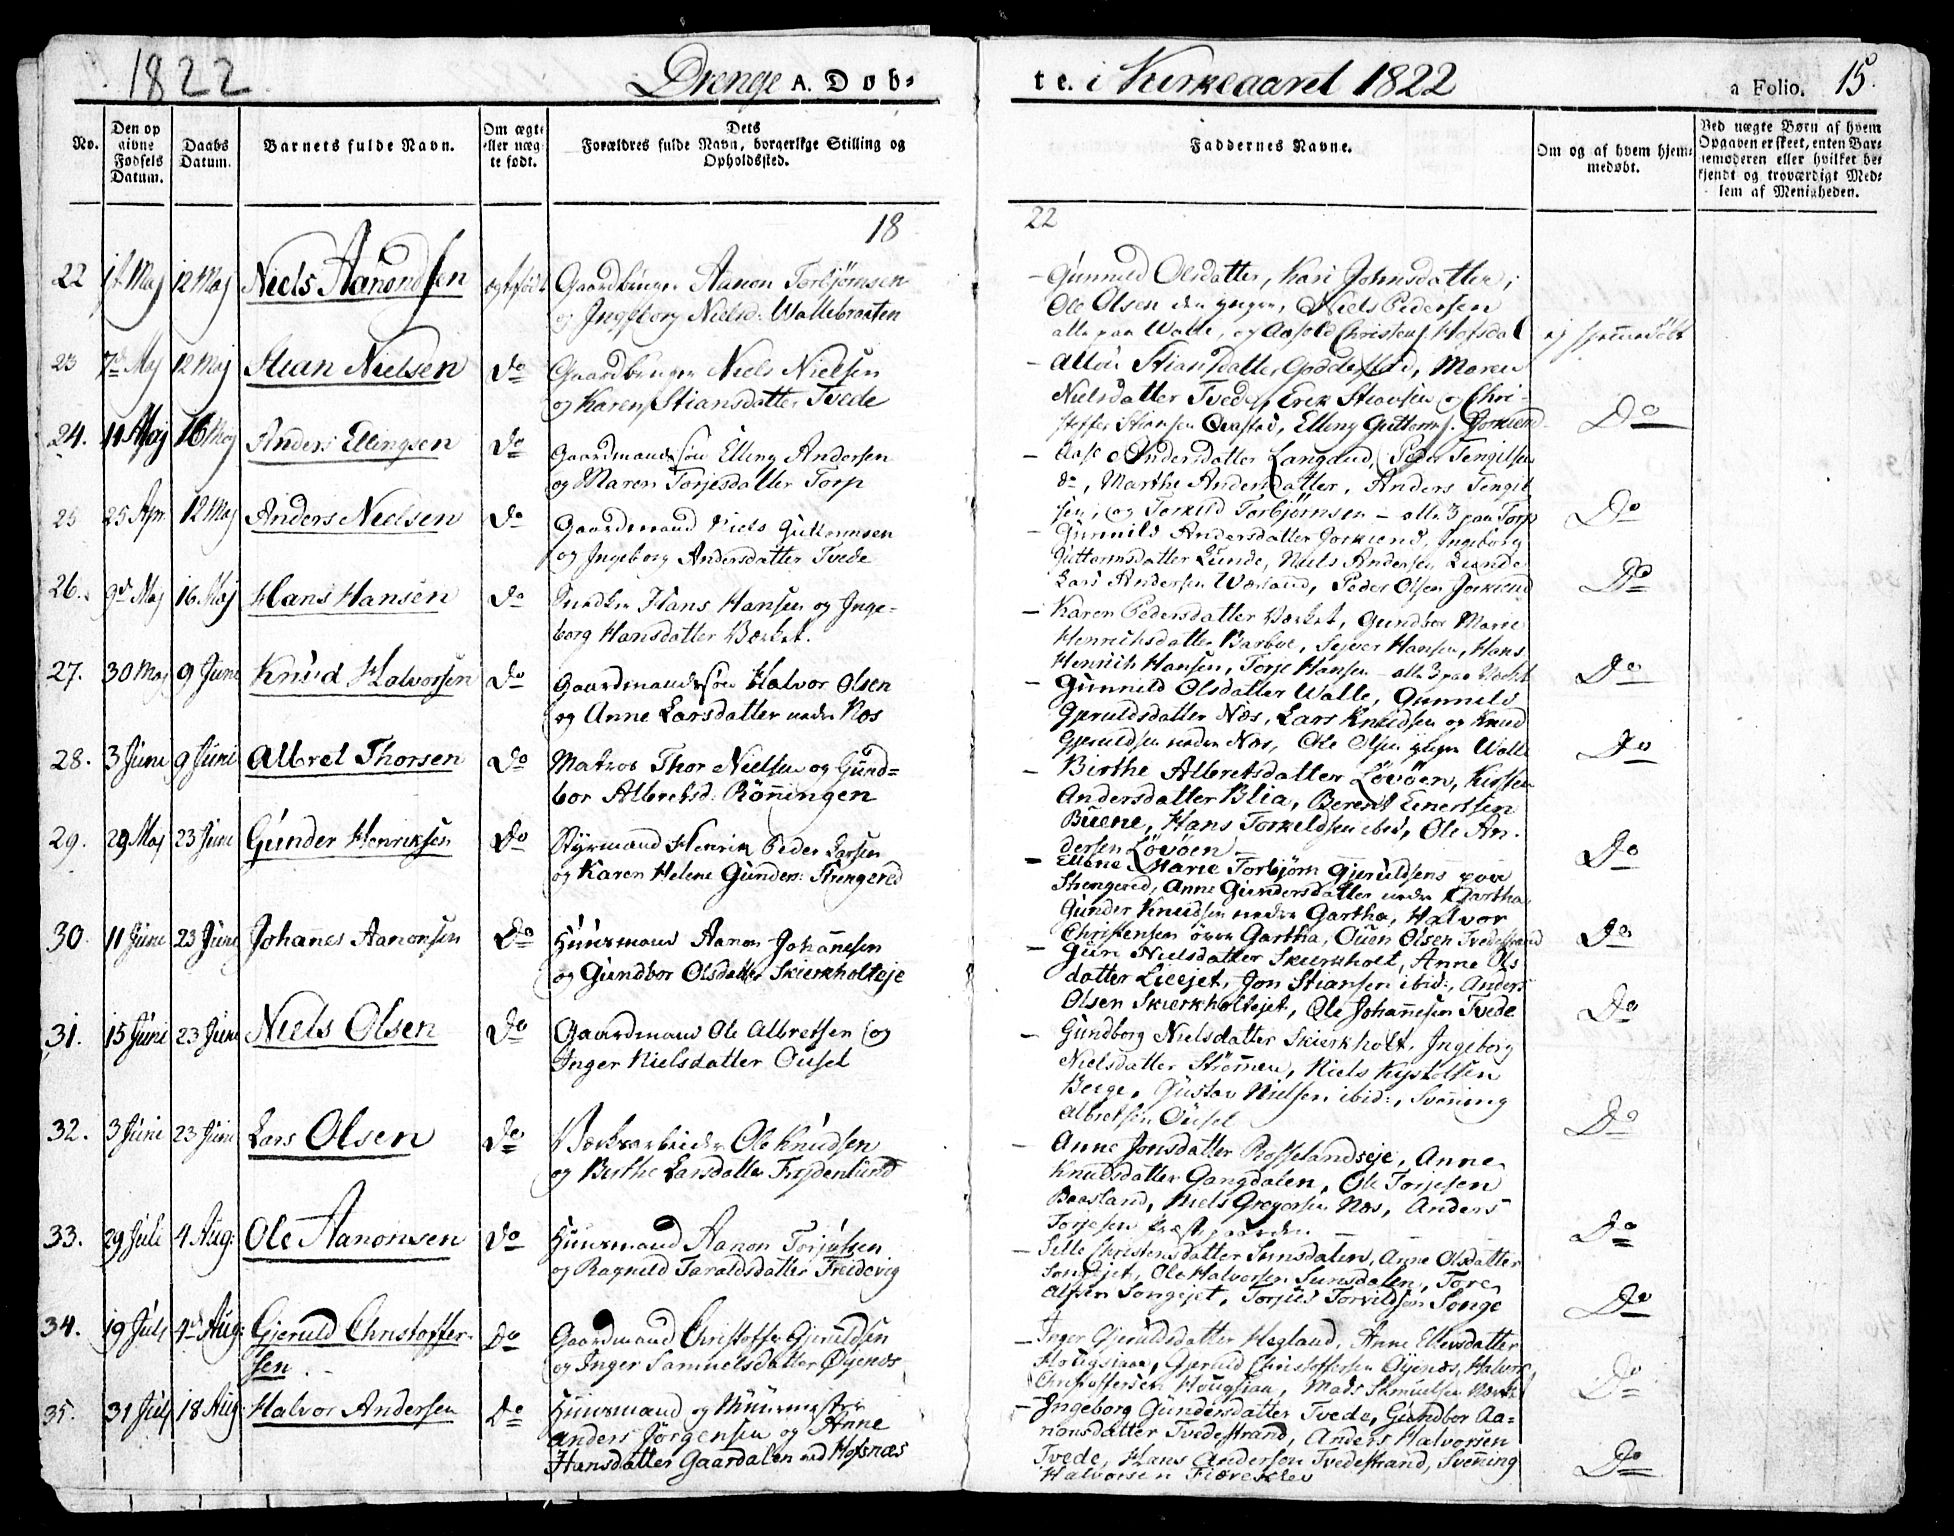 1822
Drenge A. Døb-
te. i Kirkeaaret 1822
a Folio. 15.
No.
Den op
givne
Fødsels
Datum.
Daabs
Datum.
Barnets fulde Navn.
Om ægte
eller uæg-
te født.
Dets
Forældres fulde Navn, borgerlige Stilling og
Opholdssted.
Faddernes Navne.
Om og af hvem hjem-
medøbt.
Ved uægte Børn af hvem
Opgaven er skeet, enten Bar-
nemoderen eller hvilket be-
kjendt og troværdigt Med-
lem af Menigheden.
18
22
22 1st Maj 12 Maj Niels Aanondsen ægtefødt Gaardbruger Aanon Torbjørnsen
og Ingeborg Nielsd: Wallebraaten
- Gunneld Olsdatter, Kari Johnsdatter,
Ole Olsen den yngre, Niels Pedersen
alle paa Walle, og Aasold Christens. Hofsdal
ej hjemmedøbt
23 7de Maj 12 Maj Stian Nielsen Do Gaardbruger Niels Nielsen
og Karen Stiansdatter Tvede
- Stiansdatter Goddersted, Maren
Nielsdatter Tvede, Erik Stiansen og Chri-
stoffer Stiansen Qvastad, Elling Guttorms.
Do
24. 11 Maj 16 Maj Anders Ellingsen Do Gaardmandssøn Elling Andersen
og Maren Torjesdatter Torp
- Aase Andersdatter Langaard, Peder Tengilsen
do, Marthe Andersdatter, Anders Tengil
sen, og Terkild Torbjørnsen - alle 3 paa Torp
Do
25 25 Apr. 12 Maj Anders Nielsen Do Gaardmand Niels Guttormsen
og Ingeborg Andersdatter Tvede
- Gunnild Andersdatter Jorkiend, Ingeborg
Guttormsdatter Lunde, Niels Andersen Lunde
Lars Andersen Værland, Peder Olsen Jorkiend
Do
26. 9de Maj 16. Maj Hans Hansen Do Hans Hansen og Inge-
borg Hansdatter Værket.
- Karen Pedersdatter Værket, Gundbor Marie
Henrichsdatter Barboe, Sejver Hansen, Hans
Henrich Hansen, Torje Hansen - alle 3 paa Værket
Do
27. 30 Maj 9 Juni Knud Halvorsen Do Gaardmandssøn Halvor Olsen
og Anne Larsdatter nedre Næs
- Gunnild Olsdatter Walle, Gunnild
Gjeruldsdatter Næs, Lars Knudsen og Knud
Gjeruldsen nedre Næs, Ole Olsen yngre Walle
Do
28. 3 Juni 9 Juni Albret Thorsen Do Matros Thor Nielsen og Gund-
bor Albretsd: Rønningen
- Birthe Albretsdatter Løvøen, Kirsten
Andersdatter Blia, Berent Enertsen
Buene, Hans Torkeldsen ibid, Ole An-
dersen Løvøen
Do
29. 29 Maj 23 Juni Gunder Henriksen Do Styrmand Henrik Peder Larsen
og Karen Helene Gunders: Strengered
- Ellene Marie Torbjørn Gjeruldsens
Strengered, Anne Gundersdatter nedre Gartha
Gunder Knudsen nedre Gartha, Halvor
Christensen øvre Gartha, Ouen Olsen Tvedestrand
Do
30. 11 Juni 23 Juni Johannes Aanonsen Do Huusmand Aanon Johannesen
og Gundbor Olsdatter Skierkholteje
- Guri Nielsdatter Skierkholt, Anne Ols
datter Lieejet, Jon Stiansen ibid:, Anders
Olsen Skierkholtejet, Ole Johannesen Tvede
Do
31. 15 Juni 23 Juni Niels Olsen Do Gaardmand Ole Albretsen og
Inger Nielsdatter Ousel
- Gundborg Nielsdatter Skierkholt, Ingeborg
Nielsdatter Strømmen, Niels Kystolsen
Berge, Gustav Nielsen ibid:, Svenning
Albretsen Ousel
Do
32. 3 Juni 23 Juni Lars Olsen Do Værksarbeider Ole Knudsen
og Birthe Larsdatter Frydenlund
- Anne Jonsdatter Rosselandseje, Anne
Knudsdatter Gangdalen, Ole Torjesen
Baasland, Niels Gregersen Næs, Anders
Torjesen
Do
33. 29 Juli 4 Aug: Ole Aanonsen Do Huusmand Aanon Torjulsen
og Ragnild Taraldsdatter Freidevig
- Sille Christensdatter Sunsdalen, Anne Olsdatter
Songejet, Ole Halvorsen Sunsdalen, Tore
Olsen Songejet, Torjus Torvildsen Songe
Do
34. 19 Juli 4de Aug: Gjeruld Christoffer-
sen Do Gaardmand Christoffer Gjeruldsen
og Inger Samuelsdatter Øyenæs
- Inger Gjeruldsdatter Hegland, Anne Ellevsdatter
Hougsiaae, Gjeruld Christoffersen Øyenæs, Halvor
Christoffersen Hougsiaa, Mads Samuelsen
Do
35. 31 Juli 18 Aug: Halvor Andersen Do Huusmand og Muurmester
Anders Jørgensen og Anne
Hansdatter Gaardalen ved Hofsnæs
- Ingeborg Gundersdatter Tvede, Gundbor Aa-
nonsdatter Tvedestrand, Anders Halvorsen
Tvede, Hans Anderson Tvedestrand, Svenning
Halvorsen Fiæreklev
Do